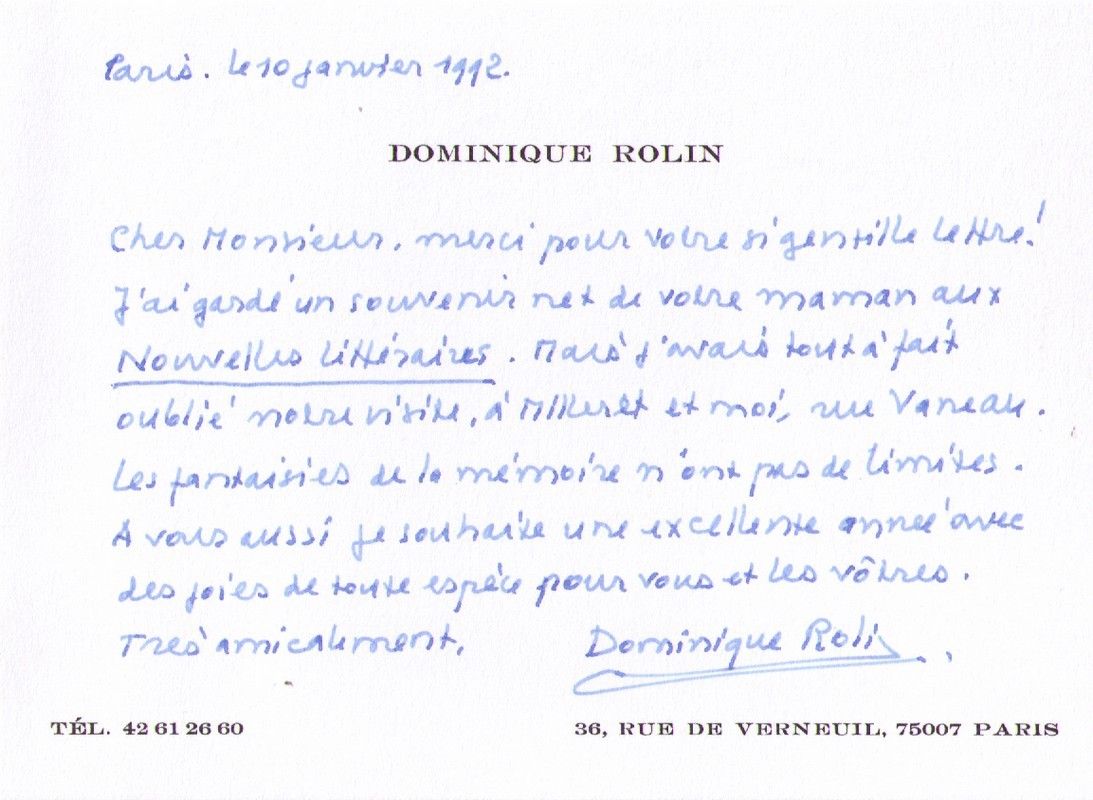 Paris. le 10 janvier 1992.
DOMINIQUE ROLIN
Cher Monsieur, merci pour votre si gentille lettre!
J'ai gardé un souvenir net de votre maman aux
Nouvelles littéraires. Mais j'avais tout à fait
oublié notre visite, à Milleret et moi, rue Vaneau.
Les fantaisies de la mémoire n'ont pas de limites.
A vous aussi je souhaite une excellente année avec
des joies de toute espèce pour vous et les vôtres.
Très amicalement,
Dominique Rolin
TÉL. 42 61 26 60
36, RUE DE VERNEUIL, 75007 PARIS